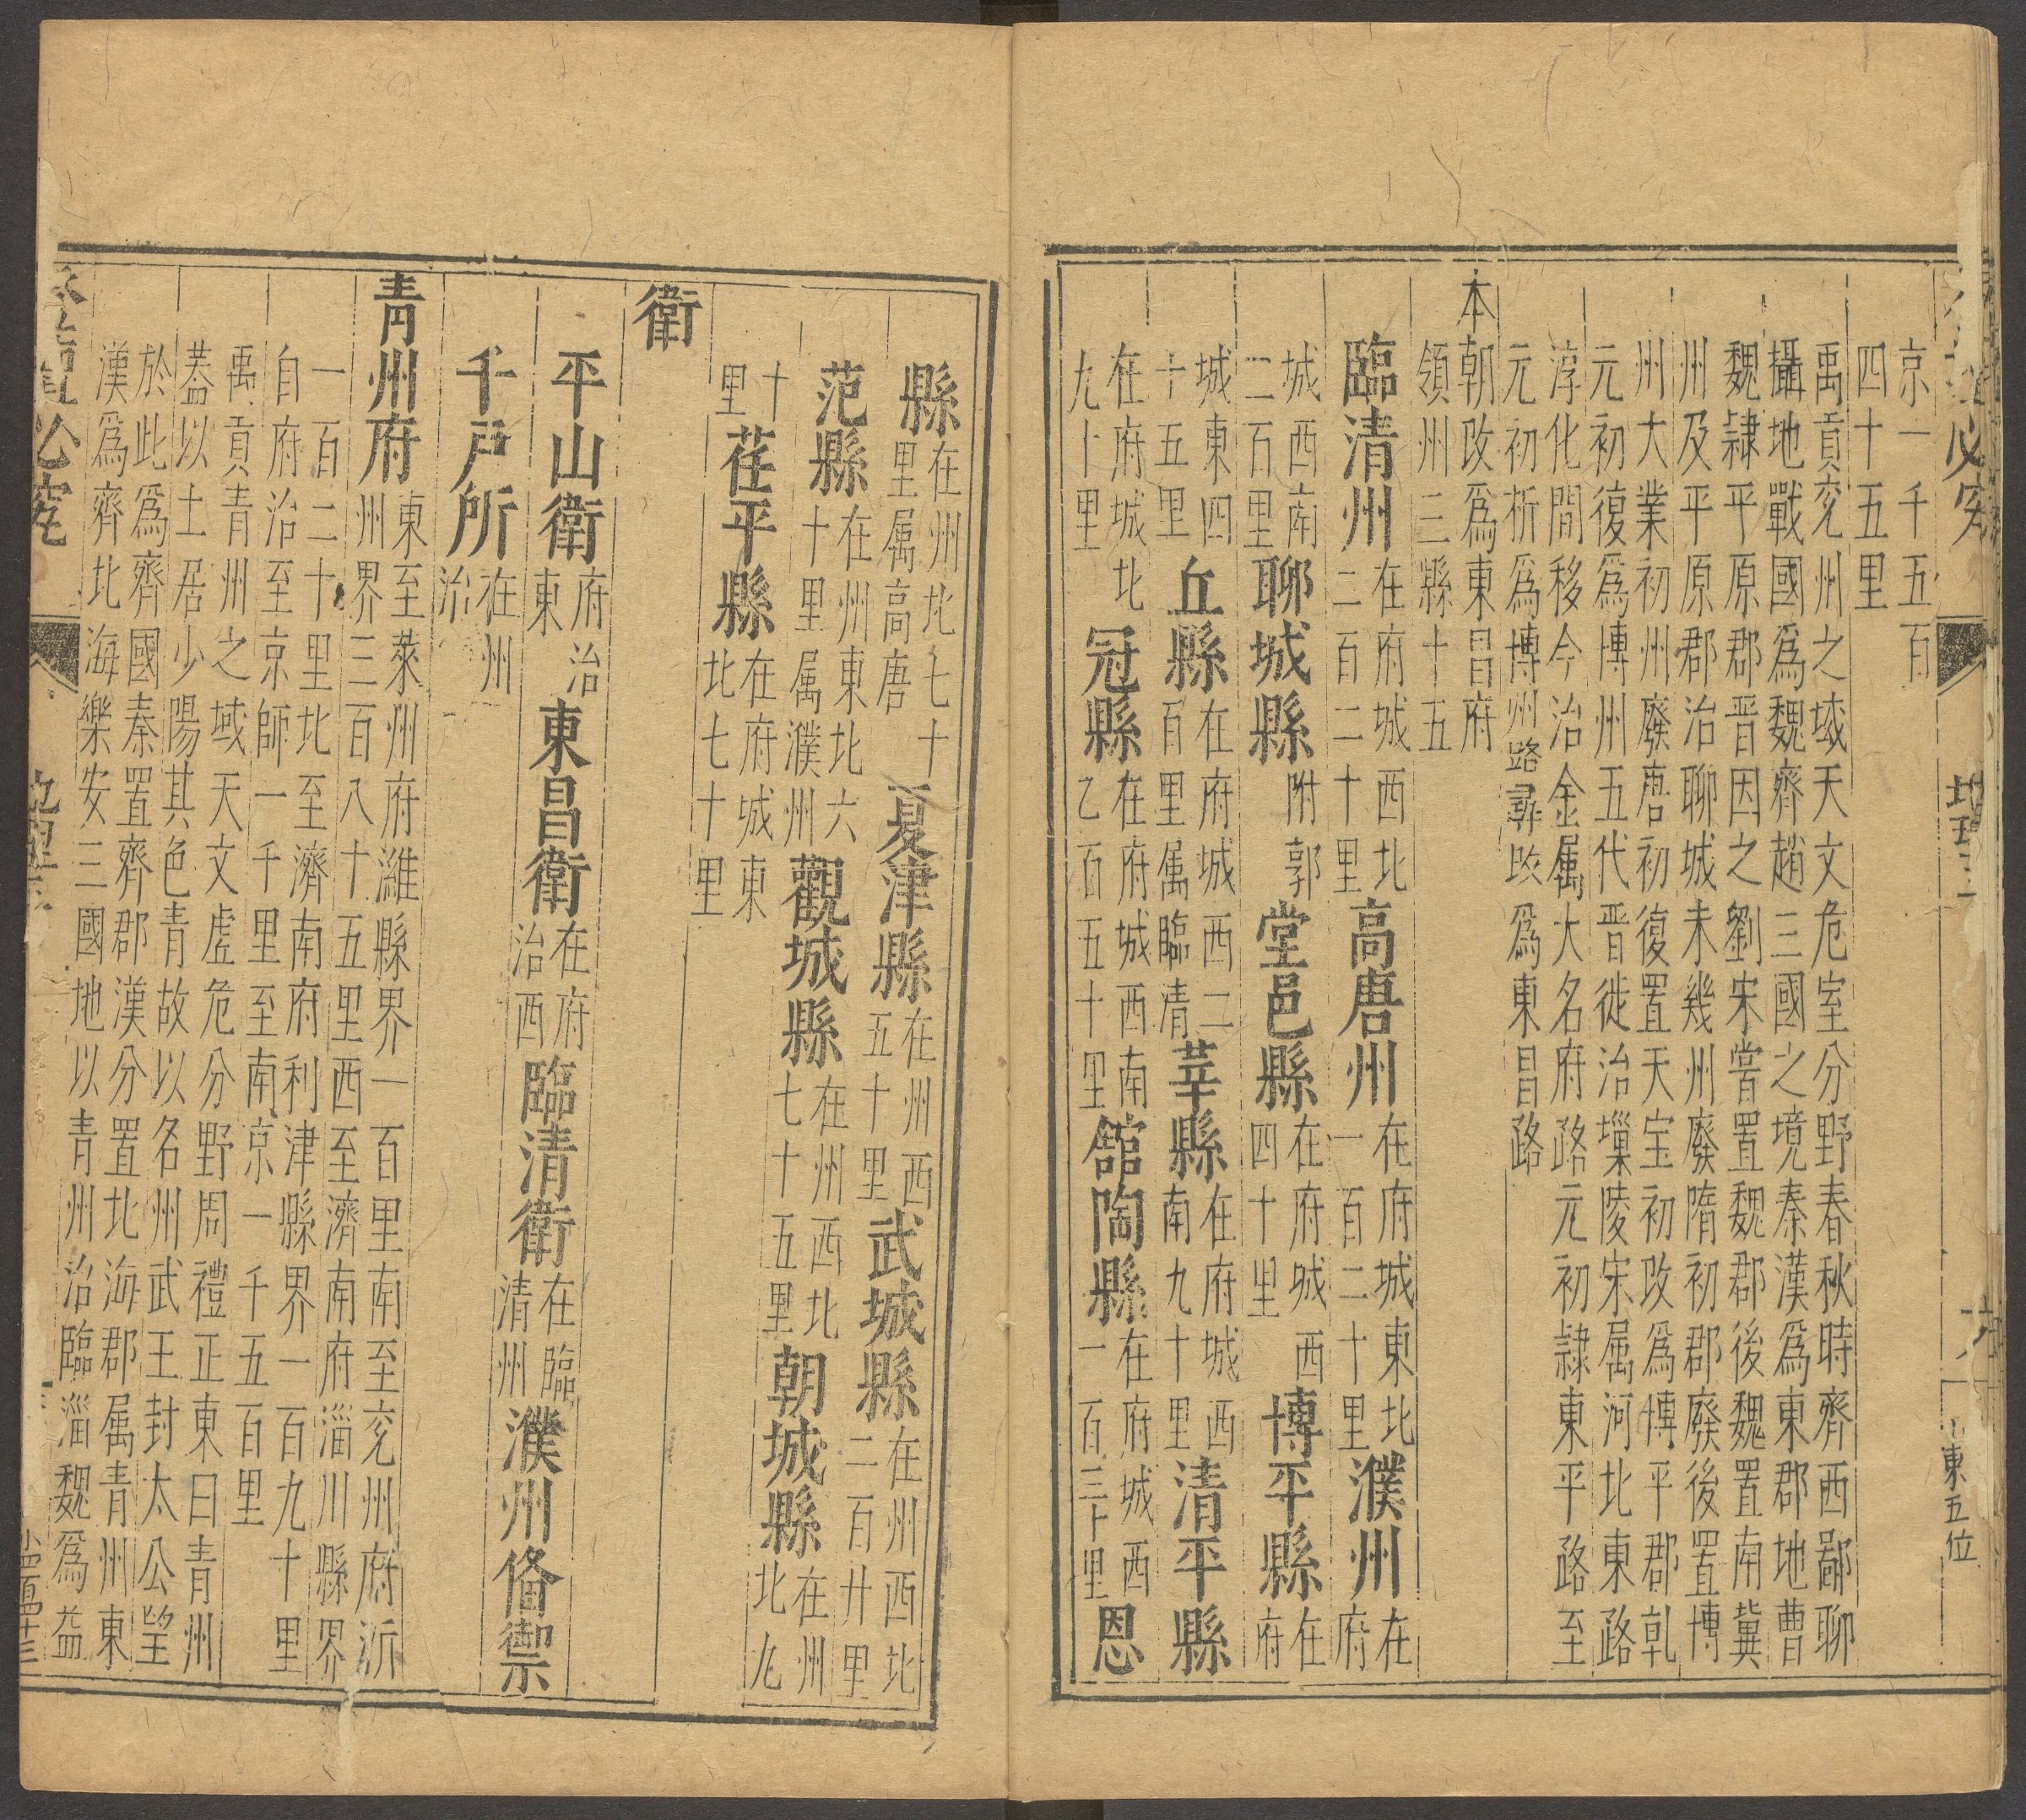 地理三
山東五位
京一千五百
四十五里
禹貢兖州之域天文危室分野春秋時齊西鄙聊
攝地戰國爲魏齊趙三國之境秦漢爲東郡地曹
魏隷平原郡晋因之劉宋嘗置魏郡後魏置南冀
州及平原郡治聊城未幾州廢隋初郡廢後置博
州大業初州廢唐初復置天宝初改爲博平郡乹
元初復爲博州五代晋徙治巢陵宋属河北東路
淳化間移今治金属大名府路元初隷東平路至
元初析爲博州路尋改爲東昌路
本朝改爲東昌府
領州三縣十五
臨清州在府城西北二百二十里高唐州在府城東北一百二十里濮州在府
城西南二百里聊城縣附郭堂邑縣在府城西四十里博平縣在府
城東四十五里丘縣在府城西二百里属臨清莘縣在府城西南九十里清平縣
在府城北九十里冠縣在府城西南乙百五十里舘陶縣在府城西一百三十里恩
縣在州北七十里属高唐夏津縣在州西五十里武城縣在州西北二百廿里
范縣在州東北六十里属濮州觀城縣在州西北七十五里朝城縣在州北九
十里茌平縣在府城東北七十里
衛
平山衛府治東東昌衛在府治西臨清衛在臨清州濮州俻禦
千戸所在州治
青州府東至萊州府濰縣界一百里南至兖州府沂州界三百八十五里西至濟南府淄川縣界
一百二十里北至濟南府利津縣界一百九十里
自府治至京師一千里至南京一千五百里
禹貢青州之域天文虗危分野周禮正東曰青州
蓋以土居少陽其色青故以名州武王封太公望
於此爲齊國秦置齊郡漢分置北海郡属青州東
漢爲齊北海樂安三國地以青州治臨淄魏爲益